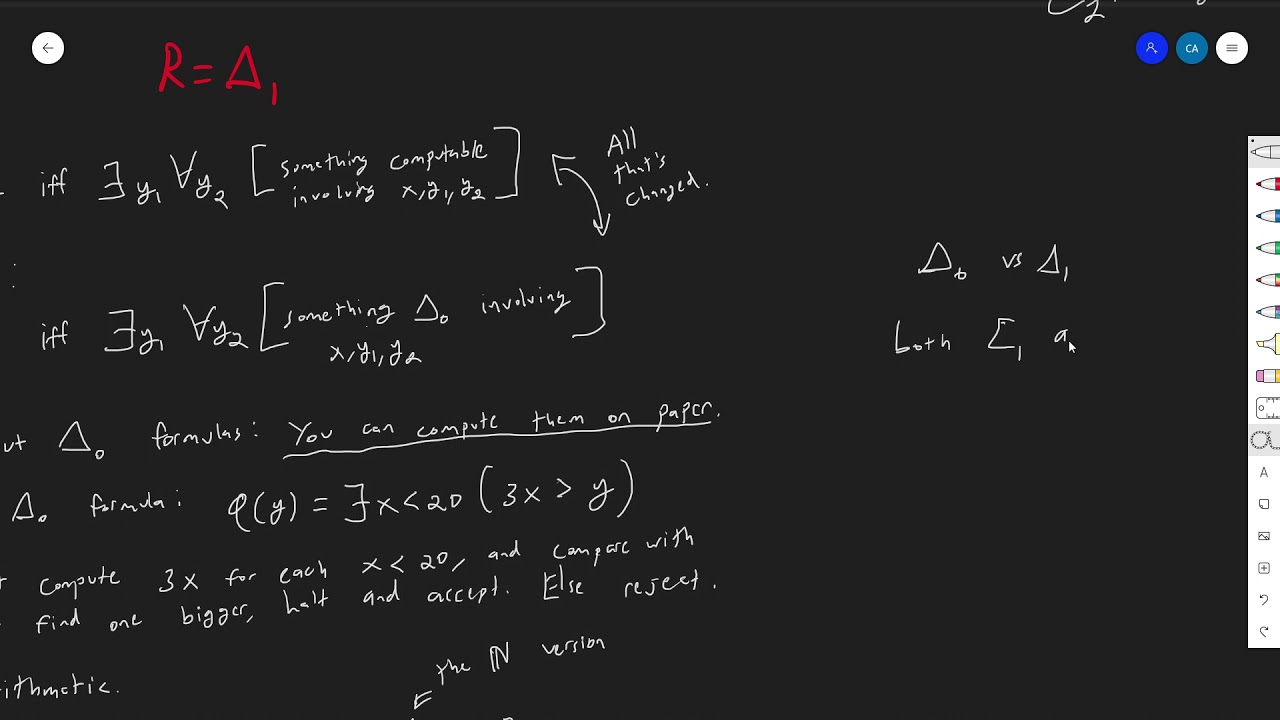 R = Δ₁
iff ∃y₁ ∀y₂ [something computable
involving x,y₁,y₂]
All
that's
changed.
:
iff ∃y₁ ∀y₂ [something Δ₀ involving
x,y₁,y₂]
Δ₀ vs Δ₁
both Σ₁ a
Δ₀ formulas: You can compute them on paper.
Δ₀ formula: φ(y) = ∃x<20 (3x > y)
compute 3x for each x < 20, and compare with
find one bigger, halt and accept. Else reject.
the ℕ version
ithmetic.
CA
A